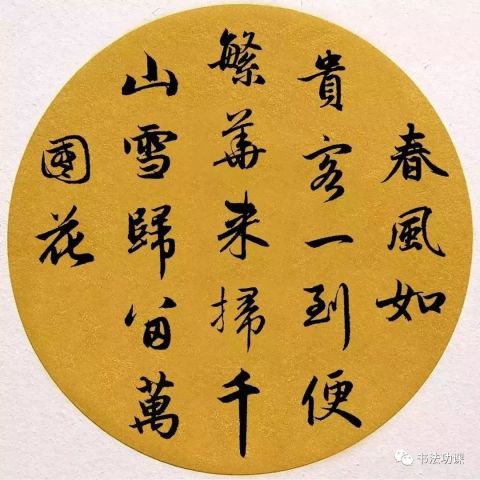 春風如
貴客一到便
繁華来掃千
山雪歸留萬
國花
书法功课